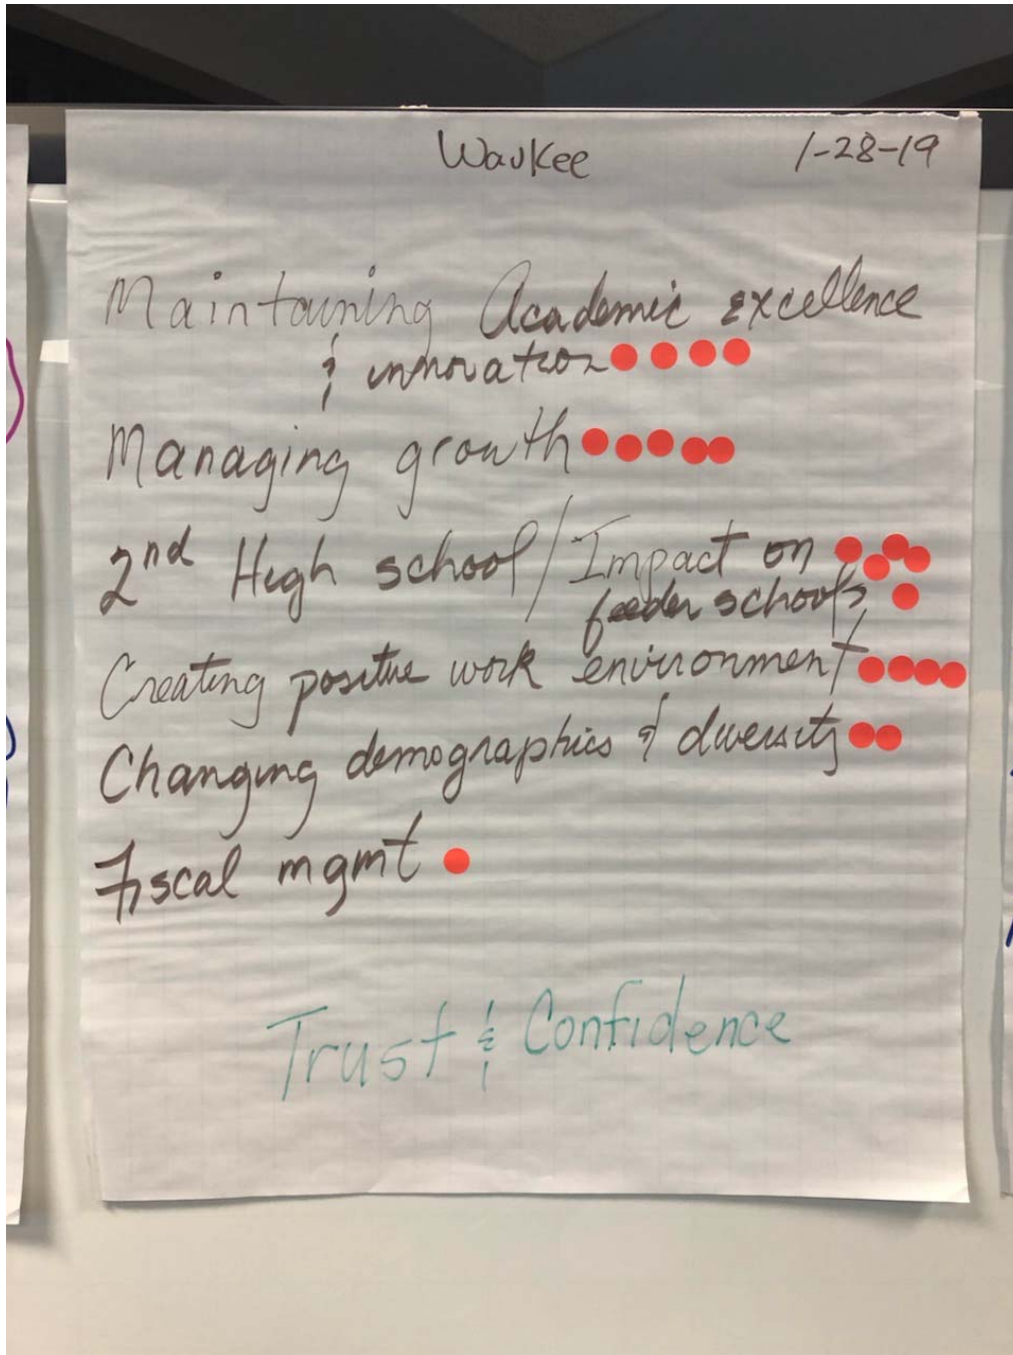 Waukee 1-28-19
Maintaining Academic excellence
& innovation
Managing growth
2nd High school / Impact on
feeder schools
Creating positive work environment
Changing demographics & diversity
Fiscal mgmt
Trust & Confidence